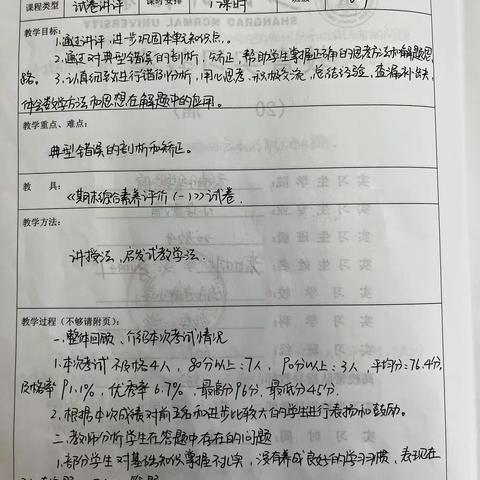 课程类型 试卷讲评 课时安排 1课时
教学目标:
1.通过讲评,进一步巩固本单元知识点。
2.通过对典型错误的剖析、矫正,帮助学生掌握正确的思考方法和解题思
路。3.认真细致进行错例分析,用心思考,积极交流,总结经验,查漏补缺,
体会数学方法和思想在解题中的应用。
教学重点、难点:
典型错误的剖析和矫正。
教 具:
《期末综合素养评价(一)》试卷.
教学方法:
讲授法,启发式教学法.
教学过程(不够请附页):
一.整体回顾、介绍本次考试情况
1.本次考试 不及格4人, 80分以上:7人, 90分以上:3人,平均分:76.4分,
及格率91.1%, 优秀率6.7%, 最高分96分, 最低分45分.
2.根据本次成绩对前五名和进步比较大的学生进行表扬和鼓励。
二.教师分析学生在答题中存在的问题
1.部分学生对基础知识掌握不扎实,没有养成良好的学习习惯,表现在